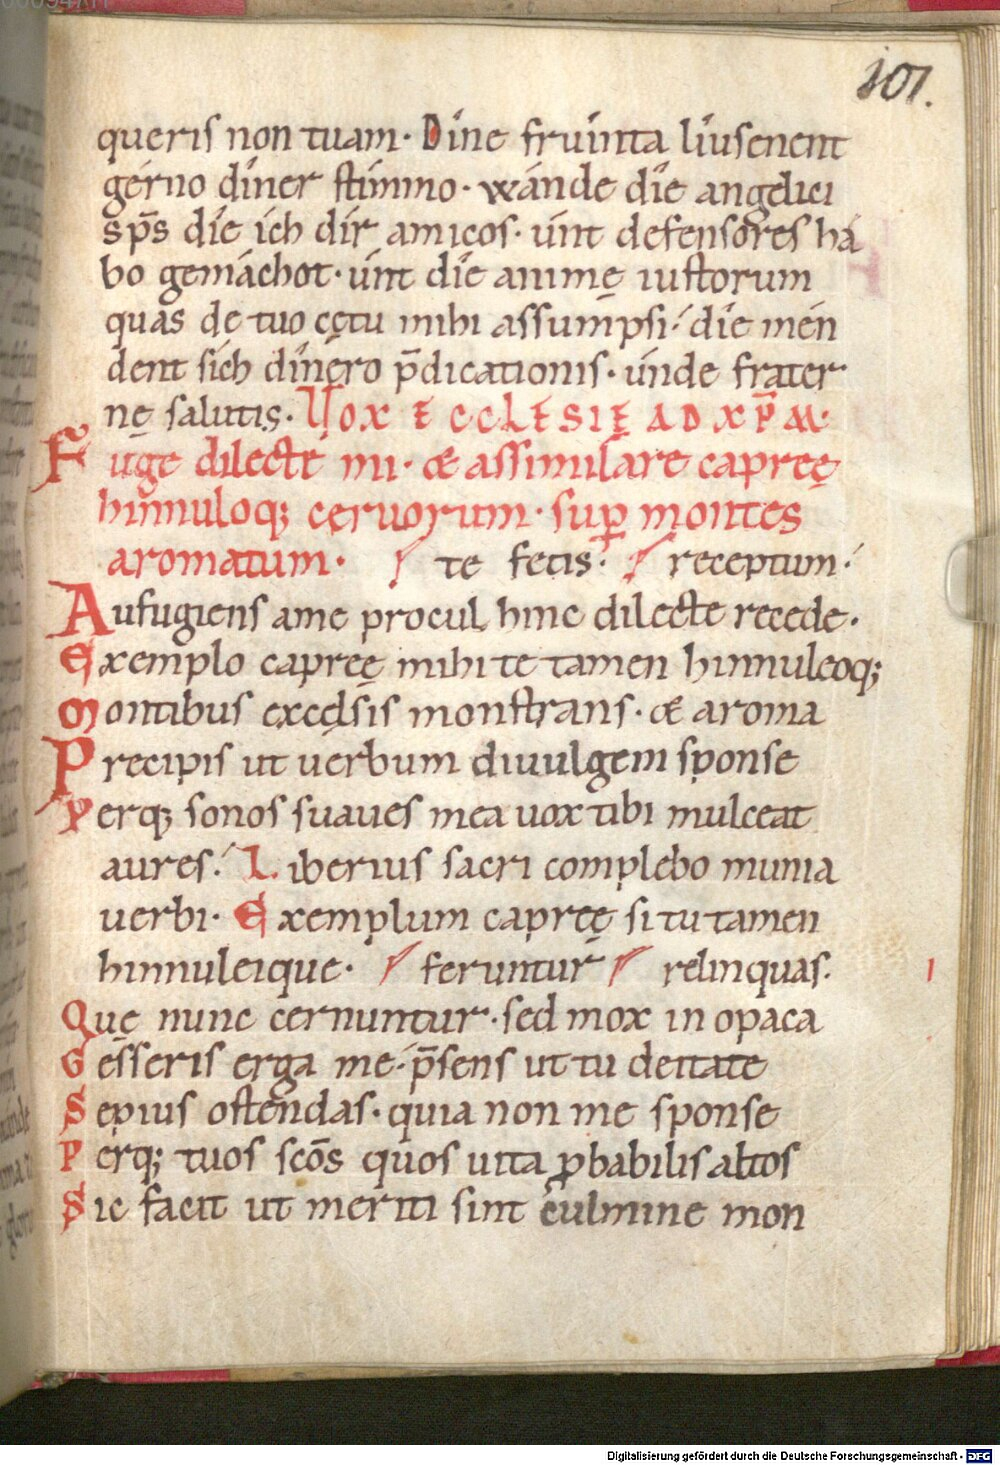 101.
queris non tuam· Dîne frûinta lîusenent
gérno dîner stimmo· wánde dîe angelici
sp̄s dîe ích dír amicos· únt defensores há
bo gemáchot· únt dîe animę iustorum
quas de tuo cętu mihi assumpsi· dîe mén
dent sích dînero p̄dicationis· únde frater
nę salutis· Vox ECCLESIĘ AD XP̄M·
Fuge dilecte mi· & assimilare capreę
hinnuloq; ceruorum· sup̱ montes
aromatum· te fetis· receptum·
Aufugiens ame procul hinc dilecte recede·
Exemplo capreę mihi te tamen hinnuleoq;
Montibus excęlsis monstrans· & aroma
Precipis ut uerbum diuulgem sponse
Perq; sonos suaues mea uox tibi mulceat
aures· Liberius sacri complebo munia
uerbi· Exemplum capreę si tu tamen
hinnuleique· feruntur relinquas·
Quę nunc cernuntur· sed mox in opaca
Gesseris erga me· p̄sens ut tu deitate
Sepius ostendas· quia non me sponse
Perq; tuos sc̄os quos uita ꝓbabilis altos
Sic facit ut meriti sint culmine mon
Digitalisierung gefördert durch die Deutsche Forschungsgemeinschaft - DFG